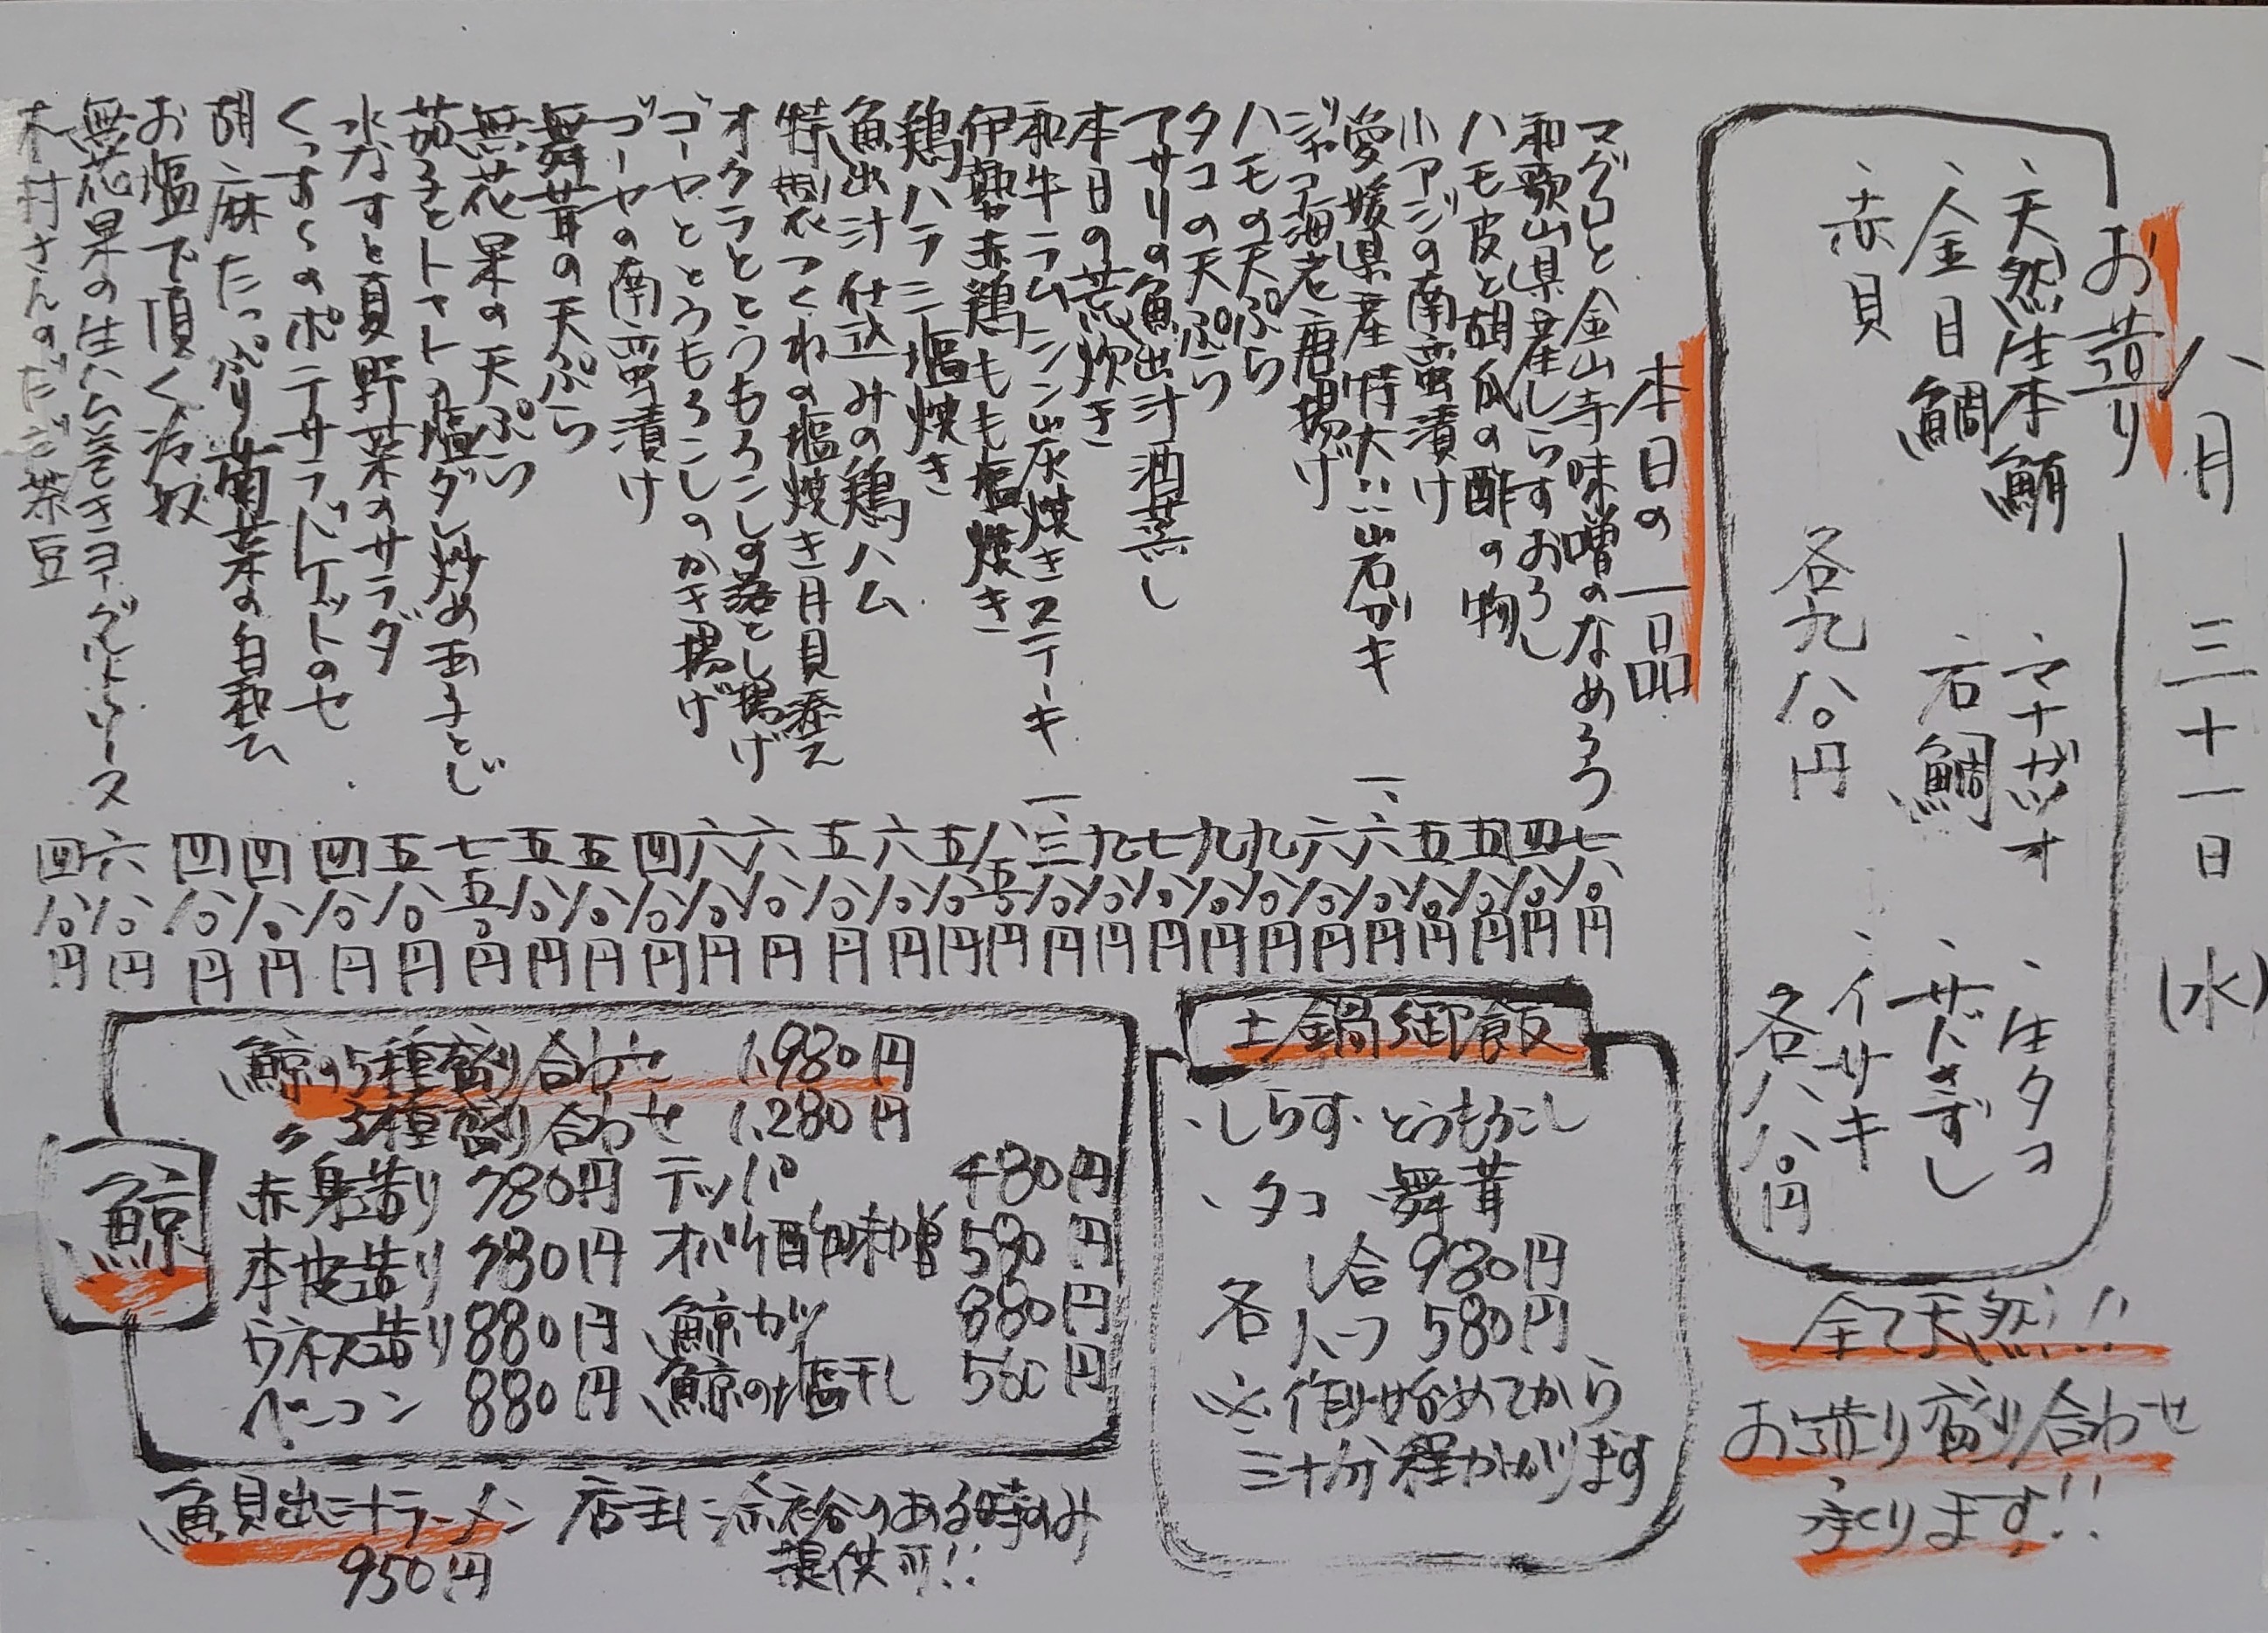 八月三十一日(水)
お造り
、天然生本鮪
、金目鯛
、赤貝
各九八〇円
、マナガツオ
、石鯛
、生タコ
、サバきずし
、イサキ
各八八〇円
全て天然!!
お造り盛り合わせ
承ります!!
本日の一品
マグロと金山寺味噌のなめろう 七八〇円
和歌山県産しらすおろし 四八〇円
ハモ皮と胡瓜の酢の物 五八〇円
小アジの南蛮漬け 五八〇円
愛媛県産特大!!岩ガキ 一、六八〇円
ジャコ海老唐揚げ 六八〇円
ハモの天ぷら 九八〇円
タコの天ぷら 九八〇円
アサリの魚出汁酒蒸し 七八〇円
本日の荒炊き 九八〇円
和牛ラムシン炭焼きステーキ 一、三八〇円
伊勢赤鶏もも塩焼き 八五〇円
鶏ハラミ塩焼き 五八〇円
魚出汁仕込みの鶏ハム 六八〇円
特製つくねの塩焼き月見添え 五八〇円
オクラととうもろこしの落とし揚げ 六八〇円
ゴーヤととうもろこしのかき揚げ 六八〇円
ゴーヤの南蛮漬け 四八〇円
舞茸の天ぷら 五八〇円
無花果の天ぷら 五八〇円
茄子とトマトの塩ダレ炒め玉子とじ 七五〇円
水なすと夏野菜のサラダ 五八〇円
くっすぅのポテサラバゲットのせ 四八〇円
胡麻たっぷり菊菜の白和え 四八〇円
お塩で頂く冷奴 四八〇円
無花果の生ハム巻きヨーグルトソース 六八〇円
木村さんのだだ茶豆 四八〇円
土鍋御飯
、しらす、とうもろこし
、タコ、舞茸
各
1合 980円
ハーフ 580円
※作り始めてから
三十分程かかります
鯨
鯨の5種盛り合わせ 1,980円
〃3種盛り合わせ 1,280円
赤身造り 780円
本皮造り 780円
ウネス造り 880円
ベーコン 880円
テッパ 480円
オバケ酢味噌 580円
鯨カツ 880円
鯨の塩干し 580円
魚貝出汁ラーメン
950円
店主に余裕のある時のみ
提供可!!